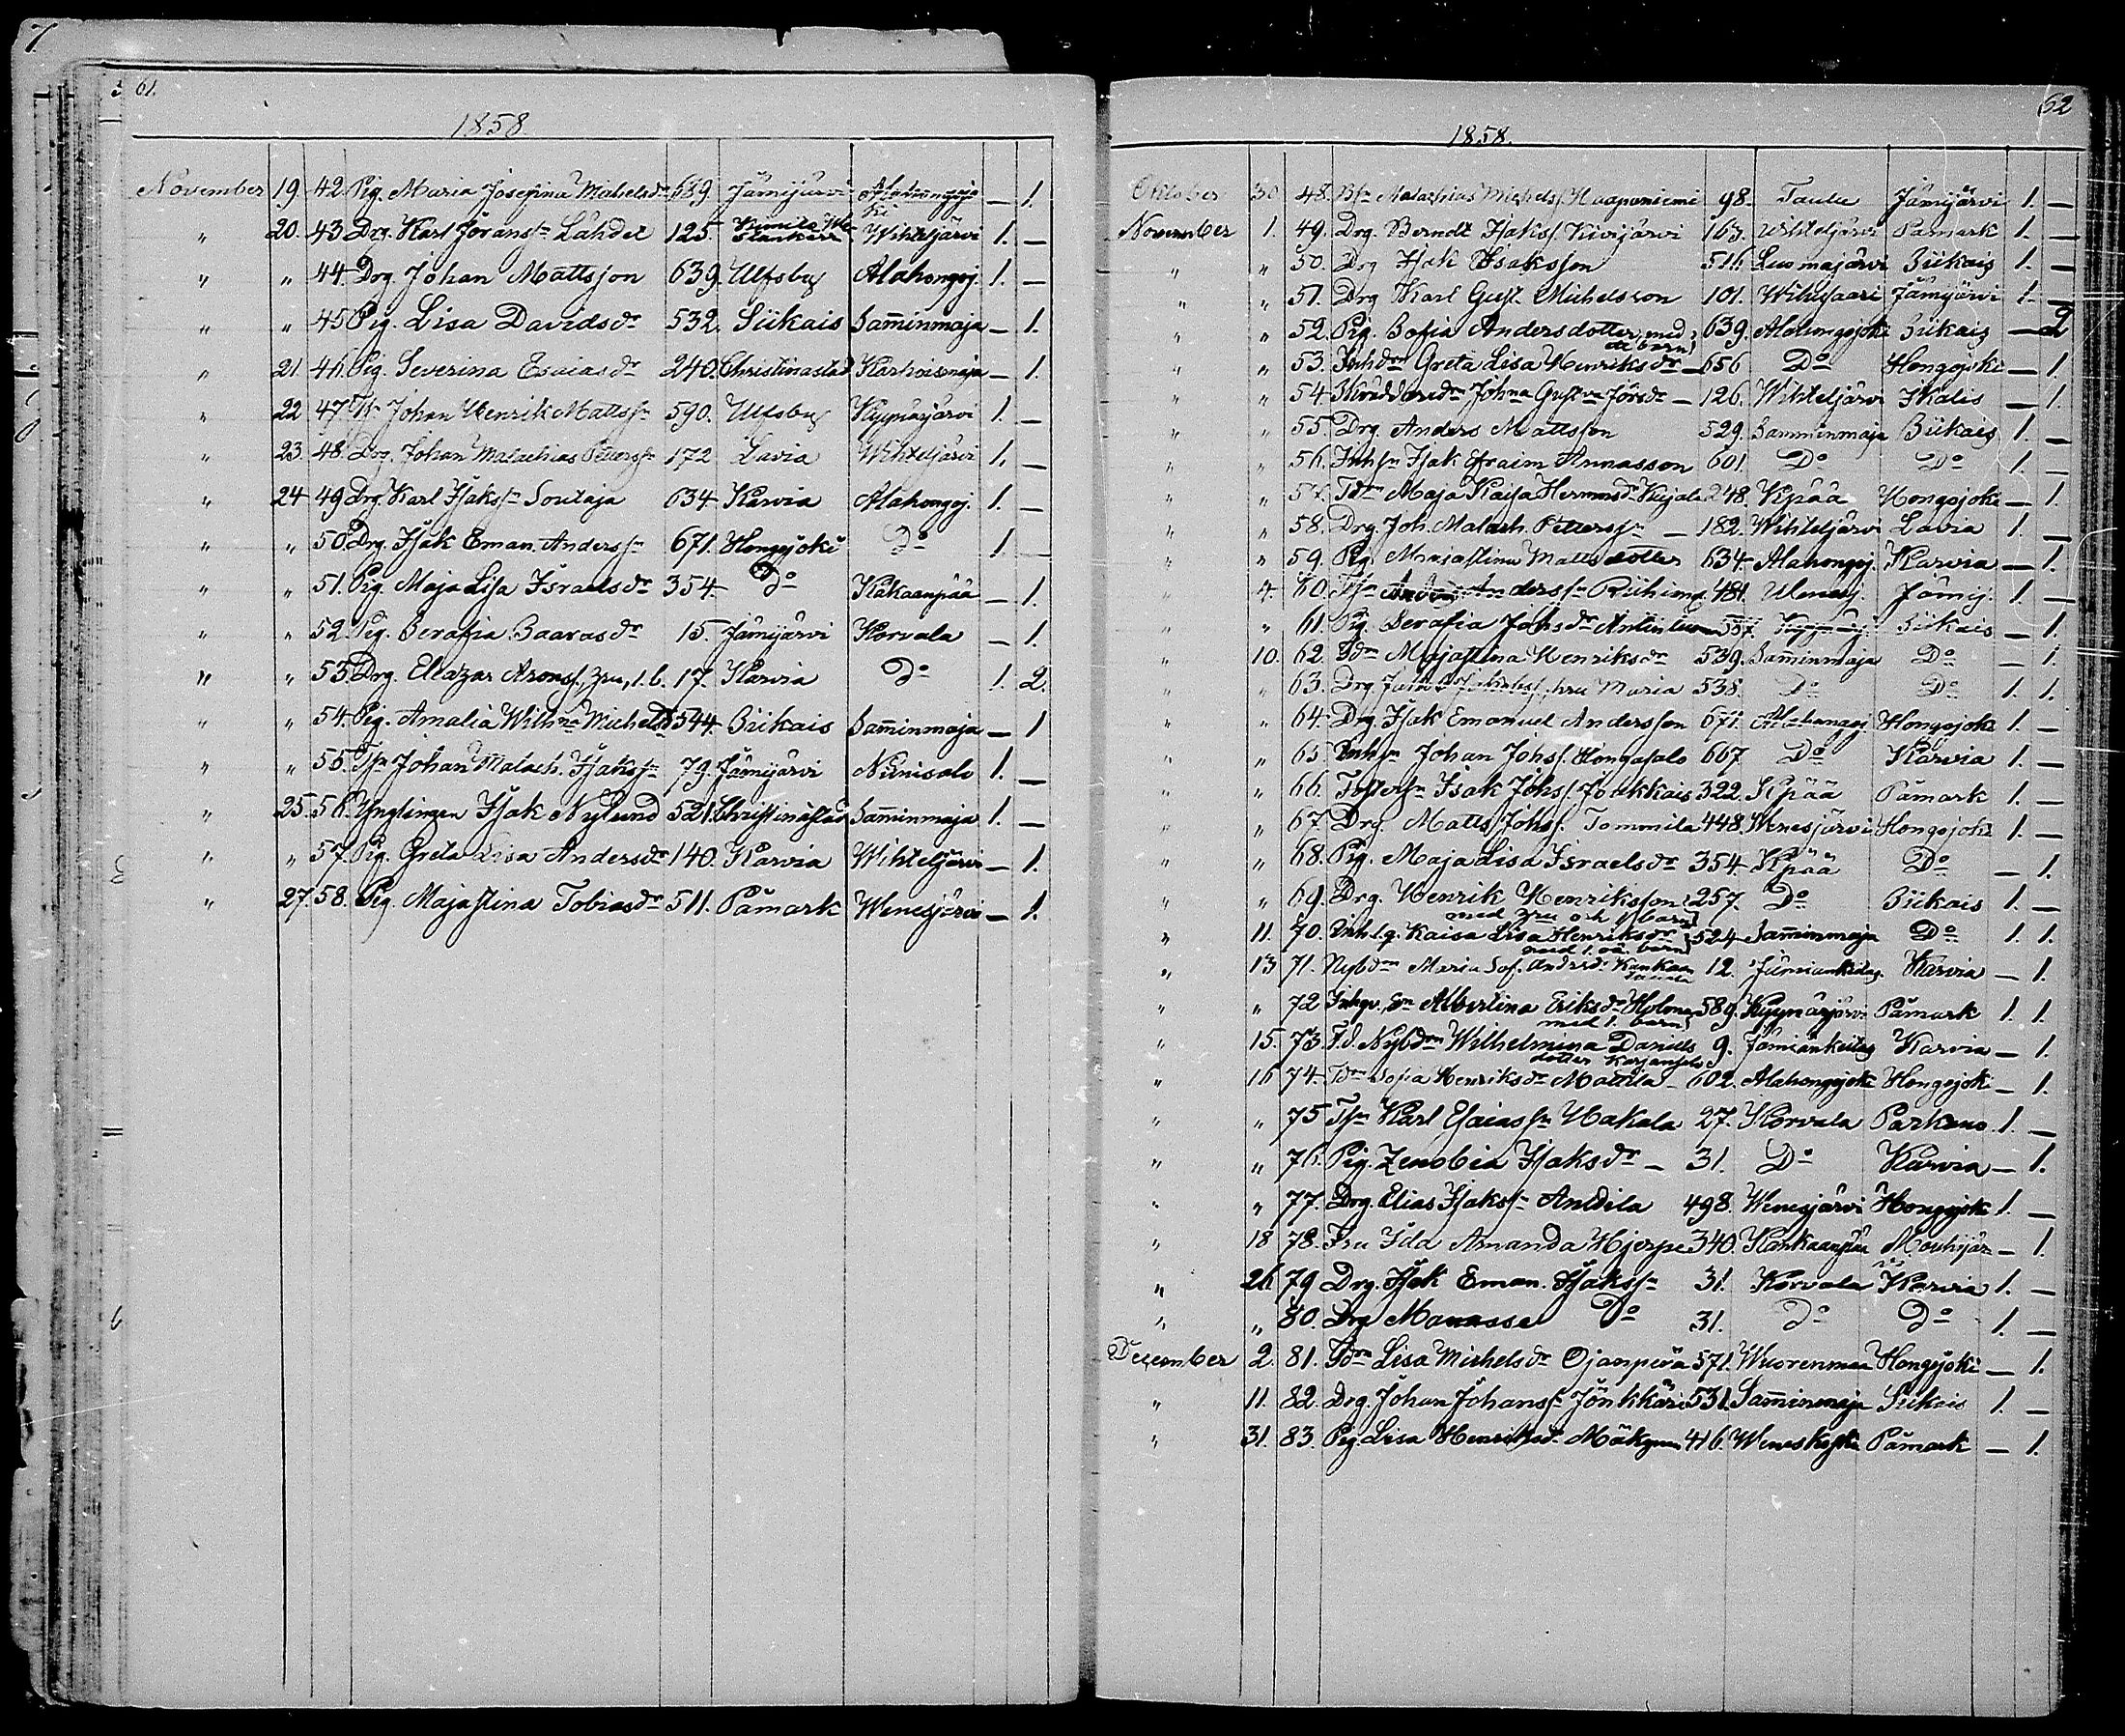 7
61.
1858
November 19. 42. Pig. Maria Josefina Michelsdr 639. Jämijärvi Alahongojoki — 1.
" 20. 43. Drg. Karl Joranssn Lähdet 125. Wihteljärvi 1. —
" " 44. Drg. Johan Mattsson 639. Ulfsby Alahongoj. 1. —
" " 45. Pig. Lisa Davidsdr 532. Siikais Samminmaja — 1.
" 21 46. Pig. Severina Esaiasdr 240. Christinastad Karhoismaja — 1.
" 22 47. Johan Henrik Mattssn 590. Ulfsby Kyynärjärvi 1. —
" 23. 48. Drg. Johan Malachias Pettersn 172 Lavia Wihteljärvi 1. —
" 24 49 Drg. Karl Isakssn Soutaja 634 Karvia Alahongoj. 1. —
" " 50. Drg. Isak Eman. Anderssn 671. Hongojoki Do 1 —
" " 51. Pig. Maja Lisa Israelsdr 354. Do Kakaanpää — 1.
" " 52. Pig. Serafia Saarasdr 15. Jämijärvi Korvala — 1.
" " 53 Drg. Eleazar Arons., Hru, 1. b. 17. Karvia Do 1. 2.
" " 54. Pig. Amalia Wilhna Michelsd 544. Siikais Samminmaja — 1
" " 55. Tsn Johan Malach. Isakssn 79. Jämijärvi Niinisalo 1. —
" 25. 56. Ynglingen Isak Nylund 521. Christinastad Samminmaja 1. —
" " 57. Pig. Greta Lisa Andersdr 140. Karvia Wihteljärvi — 1.
" 27. 58. Pig. Majastina Tobiasdr 511. Påmark Wenesjärvi — 1.
62
1858.
Oktober 30 48. Bsn Malachias Michelss. Haapaniemi 98. Taulu Jämijärvi 1. —
November 1. 49. Drg. Berndt Isakss. Kivijärvi 163. Wihteljärvi Påmark 1. —
" " 50. Drg Isak Isaksson 516 Luomajärvi Siikais 1. —
" " 51. Drg Karl Gust. Michelsson 101. Wihusaari Jämijärvi 1. —
" " 52. Pig. Sofia Andersdotter, med 639. Alahongojoki Siikais — 2
oä barn
" " 53. Inhdrn Greta Lisa Henriksdr — 656 Do Hongojoki — 1.
" " 54 Skräddaredn Johna Gustva Jörsdr — 126. Wihteljärvi Ikalis — 1.
" " 55. Drg. Anders Mattsson 529. Samminmaja Siikais 1. —
" " 56. Inhsn Isak Efraim Annasson 601. Do Do 1. —
" " 57. Maja Kaisa Hermansdr Kujala 248. Kpää Hongojoki — 1.
" " 58. Drg Joh. Malach. Petterssn — 182. Wihteljärvi Lavia 1. —
" " 59. Pig. Majastina Mattsdotter 634. Alahongoj. Karvia — 1.
" 4. 60. Tsn Anderssn Riihimä 481. Wenesj. Jämij. 1. —
" " 61. Pig. Serafia Johsdr Siikais — 1.
" 10. 62. Tdn Majastina Henriksdr 539. Samminmaja Do — 1.
" " 63. Drg hru Maria 538. Do Do 1. 1.
" " 64. Drg Isak Emanuel Andersson 671. Alahongoj. Hongojoki 1. —
" " 65 Inhsn Johan Johs. Hongasalo 667 Do Karvia 1. —
" " 66. Isak Johs. Joukkais 322. Kpää Påmark 1. —
" " 67. Drg. Matts Johs. Tommila 448. Wenesjärvi Hongojoki 1. —
" " 68. Pig. Maja Lisa Israelsdr 354 Kpää Do — 1.
" " 69. Drg. Henrik Henriksson 257. Do Siikais 1. —
med hru och 1 barn
" 11. 70. Inh.l.q. Kaisa Lisa Henriksdr 524 Samminmaja Do 1. 1.
med 1. oä. barn
" 13 71. Nybdrn Maria Sof. Andersdr 12. Jämiänkeidas Karvia — 1.
" " 72 Albertina Eriksdr Holma 589. Kyynärjärvi Påmark 1. 1.
med 1. barn
" 15. 73. F.d. Nybdrn Wilhelmina Daniels 9. Jämiänkeidas Karvia — 1.
dotter
" 16 74. Tdn Sofia Henriksdr Mattila — 602. Alahongojoki Hongojoki — 1.
" " 75 Tsn Karl Esaiassn Hakala 27. Korvala Parkano 1. —
" " 76. Pig. Zenobia Isaksdr — 31. Do Karvia — 1.
" " 77. Drg. Elias Isakssn Antdila 498. Wenesjärvi Hongojoki 1. —
" 18 78. Fru Ida Amanda Hjerpe 340. Kankaanpää Mouhijärvi — 1.
" 26 79 Drg. Isak Eman. Isakssn 31. Korvala Karvia 1. —
" " 80. Drg Manasse Do 31. Do Do 1. —
December 2. 81. Tdrn Lisa Michelsdr Ojanperä 571. Wuorenmaa Hongojoki — 1.
" 11. 82. Drg. Johan Johanssn Jönkkäri 531. Samminmaja Siikais 1. —
" 31. 83. Pig Lisa Henriksdr 416. Weneskoski Påmark — 1.